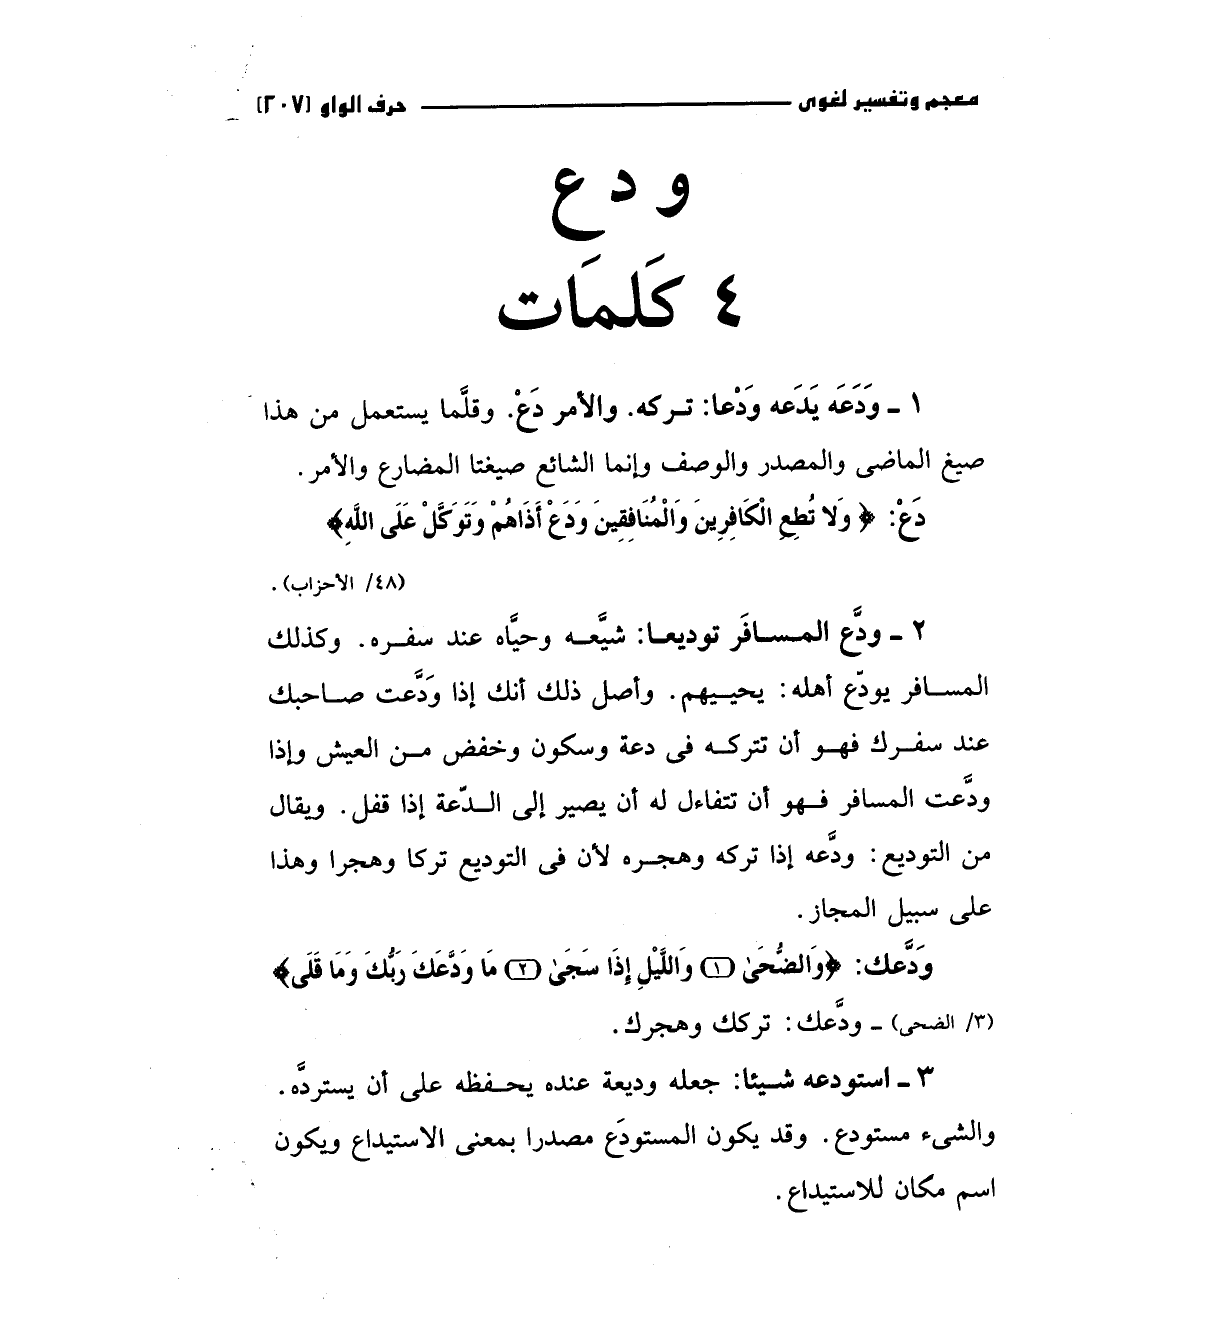 معجم وتفسير لغوى حرف الواو (٢٠٧)
و د ع
٤ كَلمَات
١ ـ وَدَعَه يَدَعه وَدْعا: تـركه. والأمر دَعْ. وقلَّما يستعمل من هذا
صيغ الماضى والمصدر والوصف وإنما الشائع صيغتا المضارع والأمر.
دَعْ: ﴿ وَلا تُطِعِ الْكَافِرِينَ وَالْمُنَافِقِينَ وَدَعْ أَذَاهُمْ وَتَوَكَّلْ عَلَى اللَّهِ﴾
(٤٨/ الأحزاب).
٢ ـ ودَّع المـسـافَر توديعـا: شيَّعـه وحيَّاه عند سفـره. وكذلك
المسـافر يودّع أهله: يحيـيهم. وأصل ذلك أنك إذا وَدَّعت صـاحبك
عند سفـرك فهـو أن تتركـه فى دعة وسكون وخفض مـن العيش وإذا
ودَّعت المسافر فـهو أن تتفاءل له أن يصير إلى الـدّعة إذا قفل. ويقال
من التوديع: ودَّعه إذا تركه وهجـره لأن فى التوديع تركا وهجرا وهذا
على سبيل المجاز.
وَدَّعك: ﴿وَالضُّحَىٰ (١) وَاللَّيْلِ إِذَا سَجَىٰ (٢) مَا وَدَّعَكَ رَبُّكَ وَمَا قَلَى﴾
(٣/ الضحى) ـ ودَّعك: تركك وهجرك.
٣ ـ استودعه شـيئا: جعله وديعة عنده يحـفظه على أن يستردَّه.
والشىء مستودع. وقد يكون المستودَع مصدرا بمعنى الاستيداع ويكون
اسم مكان للاستيداع.